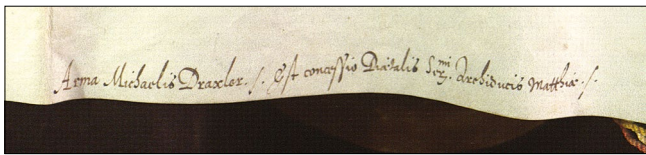 Arma Michaelis Draxler. /. Est concessio Diætalis Ser.mi Archiducis Matthiæ. /.